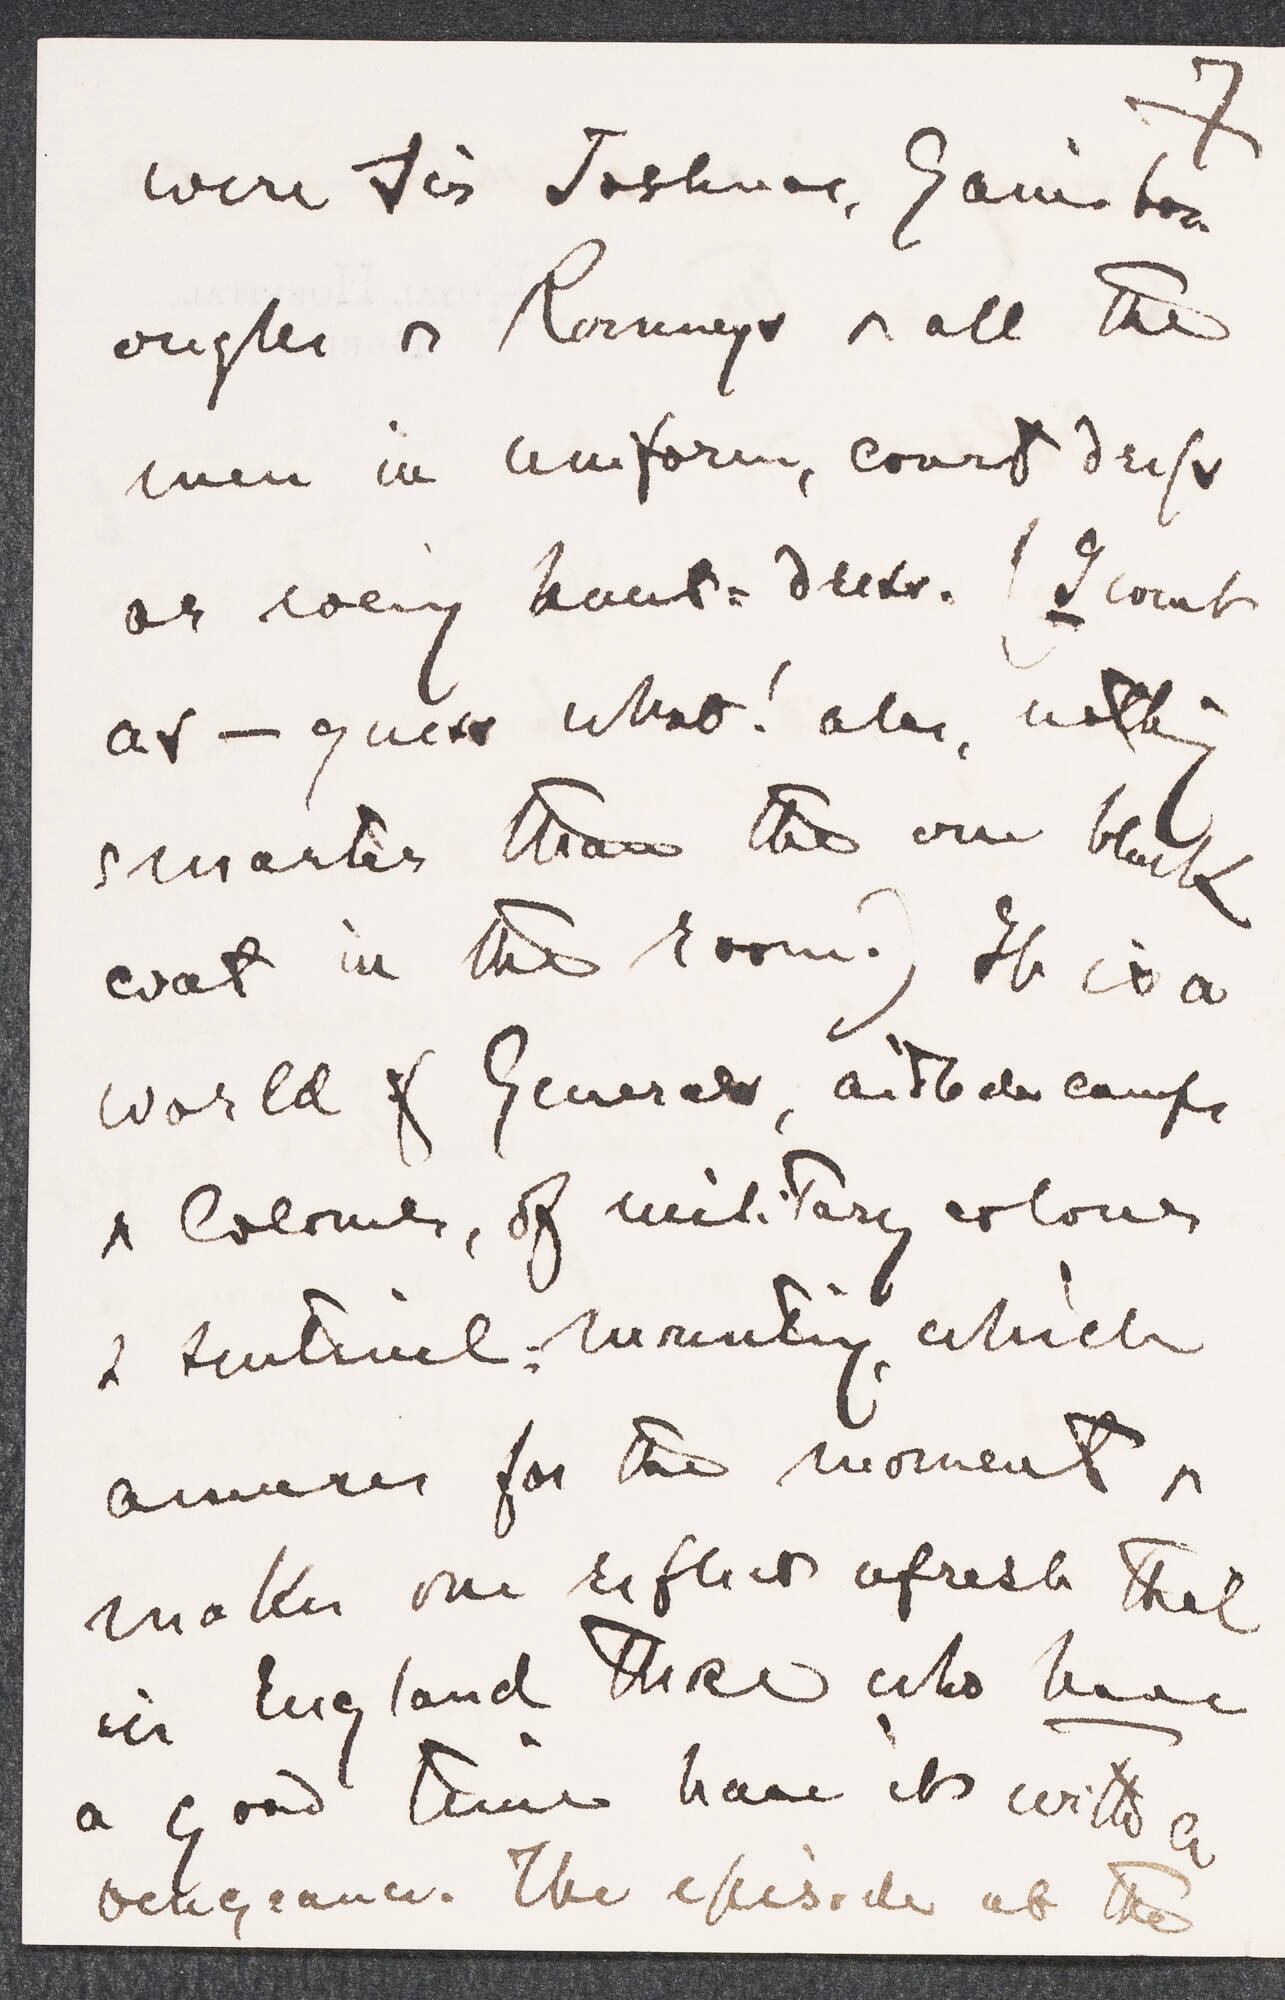 7
were Sir Joshuas, Gainsbor-
oughs or Romneys & all the
men in uniform, court dress
or swing hunt-dress. (I went
as — guess what! alas, nothing
smarter than the one black
coat in the room.) It is a
world of Generals, aide de camps
& Colonels, of military colours
& sentinel-mounting, which
amuses for the moment &
makes one reflect afresh that
in England those who have
a good time have it with a
vengeance. The episode at the